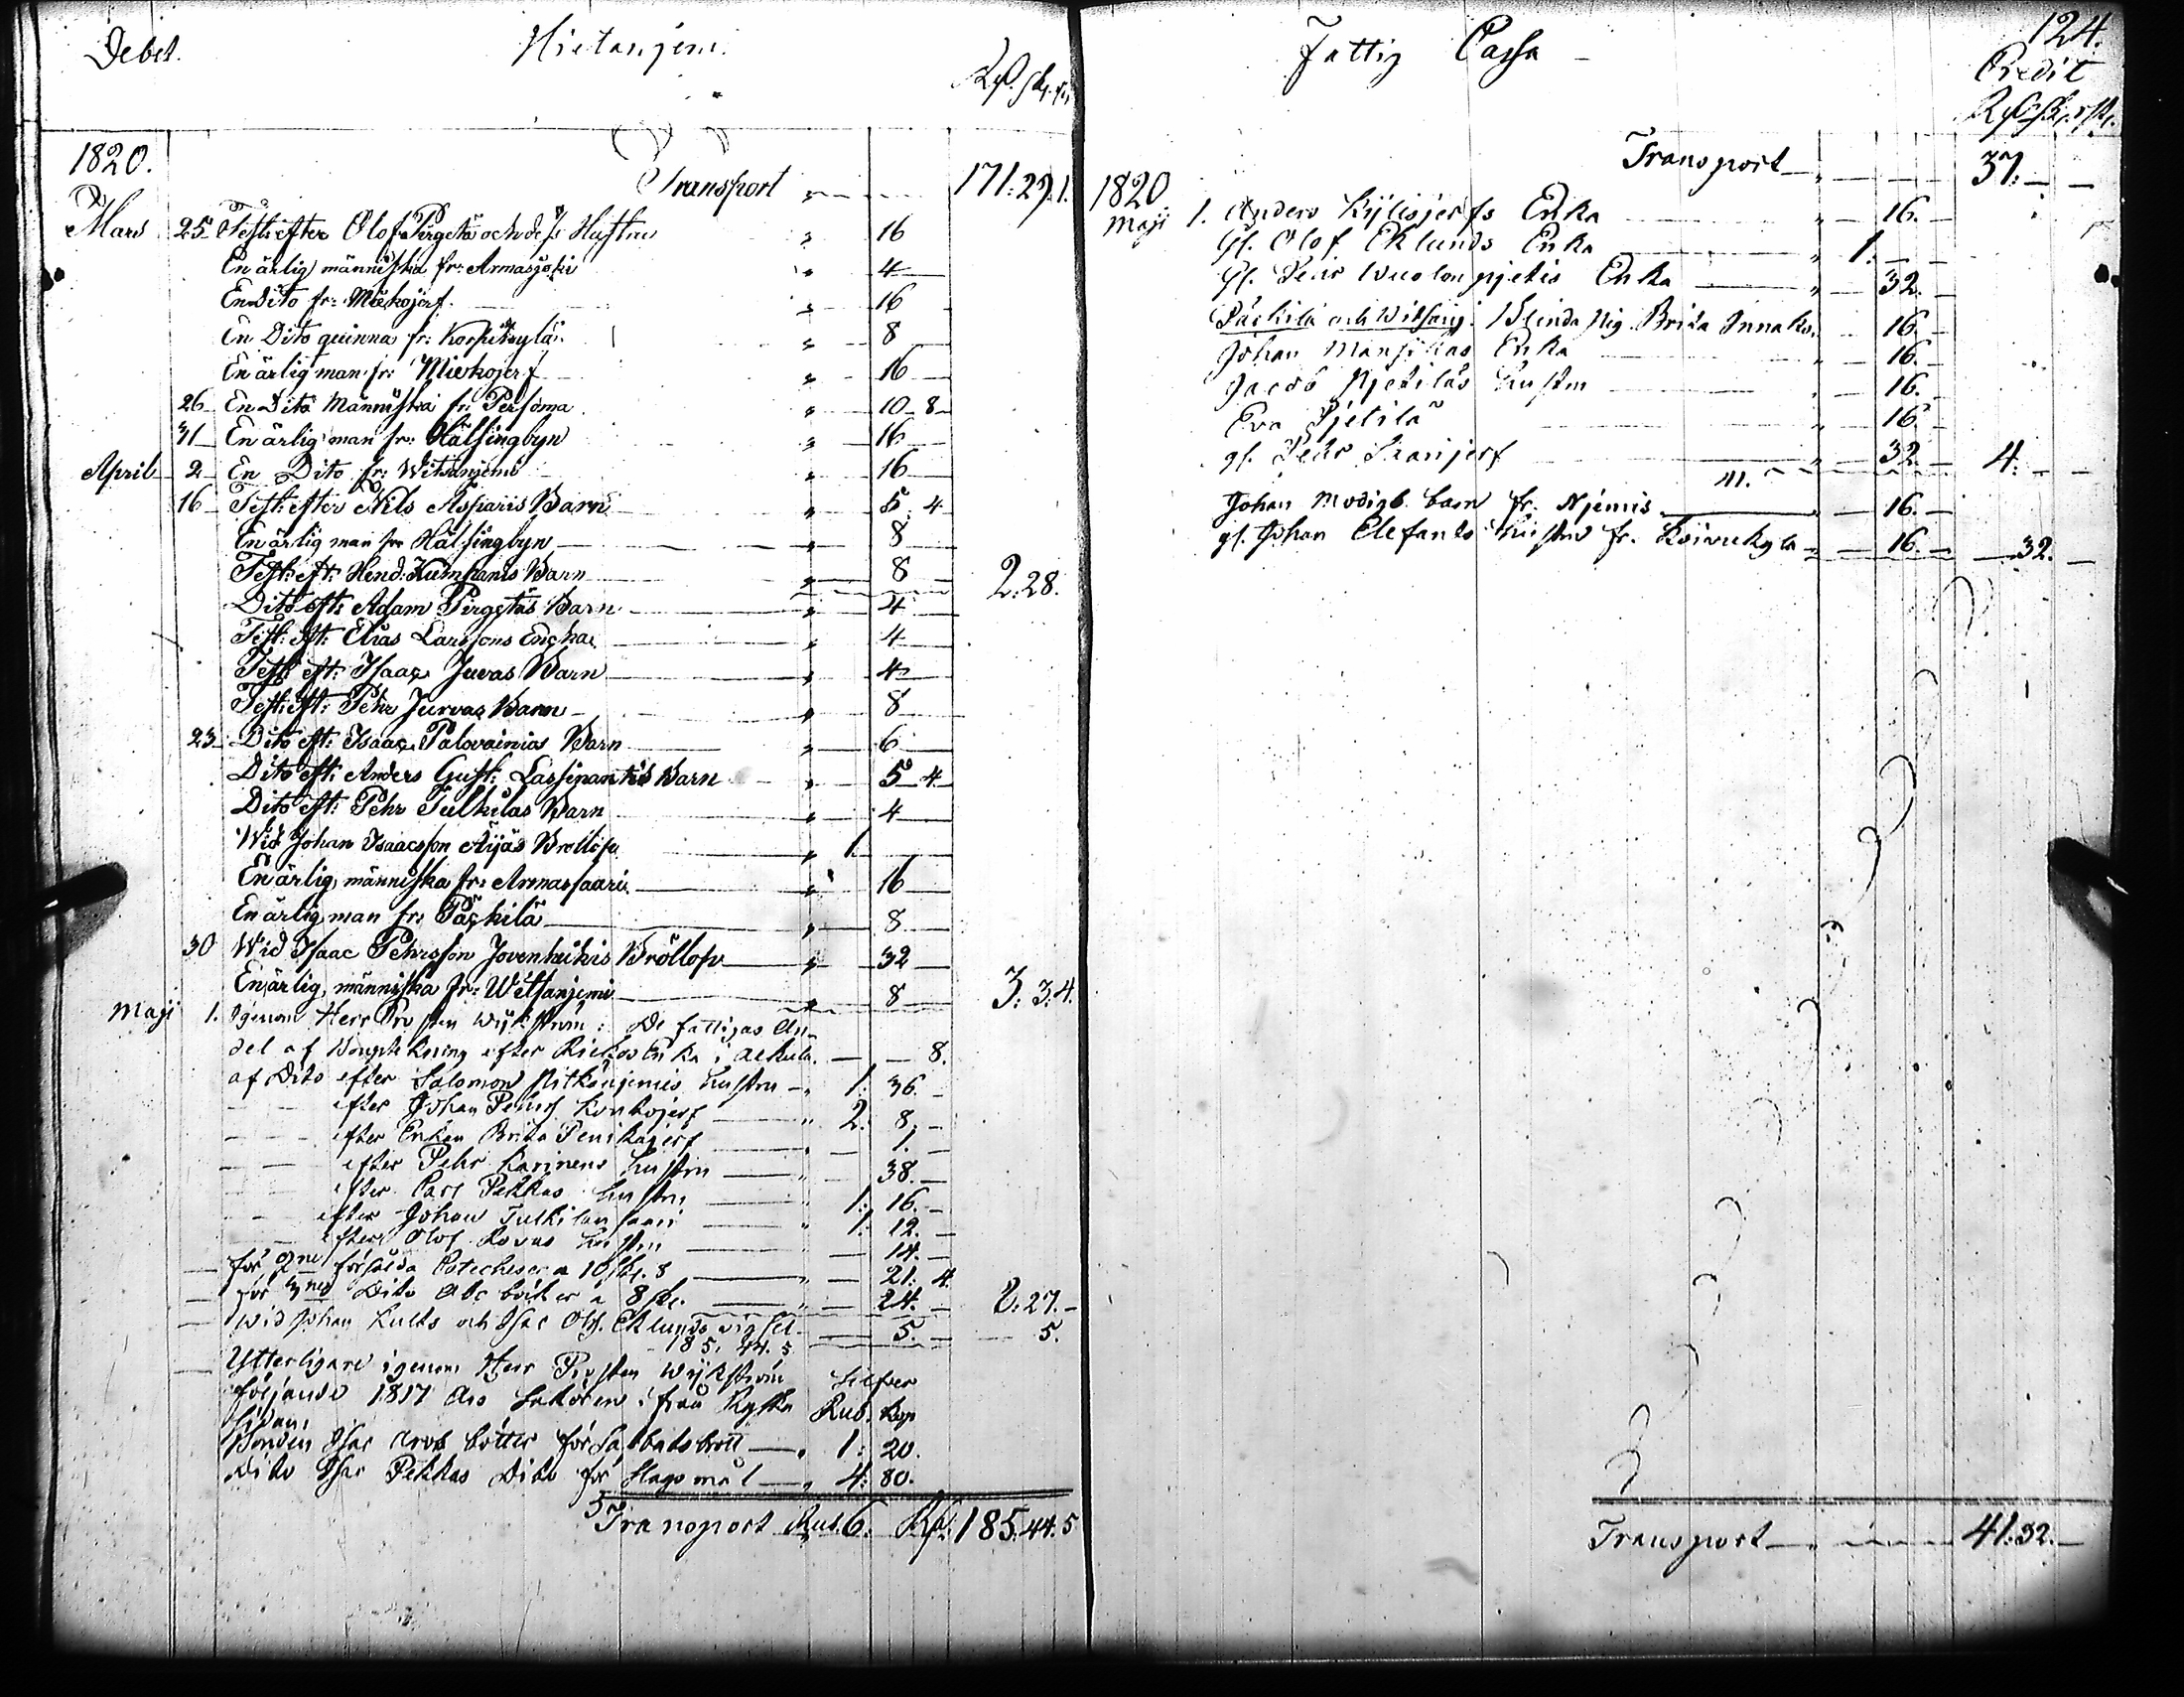 Debet. Hietaniemi.
Rd. sk. rst.
1820. Transport 171: 27. 1.
Mars 25 Test: efter Olof Pirgetä och dess Hustru 16
En ärlig människa fr: Armasjoki 4
En Dito fr: Miekojerf 16
En Dito quinna fr: Korpikylä 8
En ärlig man fr: Miekojerf 16
26 En Dito Människa fr: Persoma 10 8
31 En ärlig man fr: Hälsingbyn 16
April 2 En Dito fr: Witsanjemi 16
16 Test: efter Nils Aspariis Barn 5. 4
En ärlig man fr Hälsingbyn 8
Test: eft: Hend: Kumpanis Barn 8 2. 28.
Dito eft: Adam Pirgetäs Barn 4
Test: eft: Elias Larssons Encka 4
Test: eft: Isaac Juvas Barn 4
Test: eft: Pehr Jurvas Barn 8
23 Dito eft: Isaac Palovainias Barn 6
Dito eft: Anders Gust: Lassinanttis Barn 5 4
Dito eft: Pehr Tulkilas Barn 4
Wid Johan Isaacsson Äijäs Brollop 1.
En ärlig människa fr: Armassaari 16
En ärlig man fr: Päckilä 8
30 Wid Isaac Pehrsson Jovenheikis Bröllop 32
En ärlig människa fr: Witsanjemi 8 3: 3: 4.
Maji 1. Igenom Herr Prosten Wijkström: De fattigas An-
del af Boupteckning efter Enka i 8.
af Dito efter Salomon Pitkänjemis hustru 1: 36.
efter Johan Pehrs. Kuckojerf 2: 8.
efter Enkan Brita Penikajerf 1.
efter Pehr Karinens hustru 38.
efter Carl Pekkas hustru 1: 16.
efter Johan Tulkilan saari 1: 12.
efter Olof Rovas hustru 14.
för 2ne försålda Catecheser a 10 sk. 8 21: 4.
för 3ne Dito Abc böcker a 8 sk. 24. 8. 27.
wid Johan Kults och Isac Ols. Eklunds vigsel 5. 5.
185. 44. 5
Ytterligare igenom Herr Prosten Wijkström Silfver
följande 1817 Års Sakören ifrån Ryska Rub. Kop
sidan:
Bonden Isac Arvs böter för Sabbatsbrott 1: 20.
Dito Isac Pekkas Dito för Slagsmål 4: 80.
Transport Rub. 6. Rd. 185. 44. 5
Fattig Cassa 124.
Credit
Rd. sk. rst.
Transport 37.
1820
Maji 1. Anders Kylisjerfs Enka 16.
gl. Olof Eklunds Enka 1.
gl. Pehr Wuolonpjetis Enka 32.
Päckilä och Witsanj. Blinda Pig. Brita Innaks. 16.
Johan Mansikas Enka 16.
Jacob Pjetiläs hustru 16.
Eva Pjetilä 16.
gl. Pehr Iranjerf 32. 4.
Johan Modigs barn fr. Njemis 16.
gl. Johan Elefants hustru fr. Koivukyla 16. 32.
Transport 41: 32.